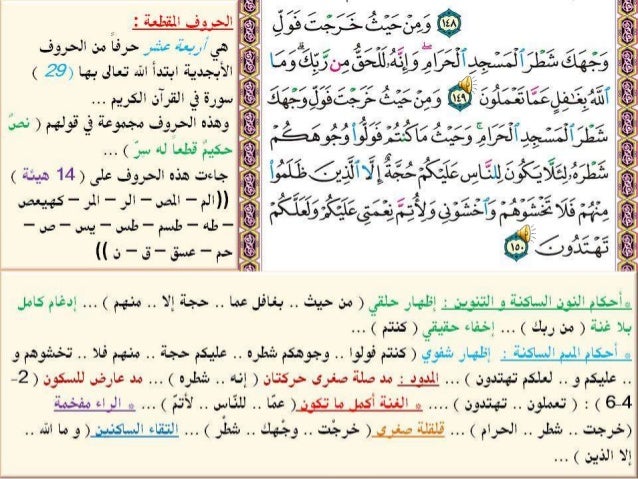 الحروف المقطعة :
هي أربعة عشر حرفاً من الحروف
الأبجدية ابتدأ الله تعالى بها ( 29 )
سورة في القرآن الكريم ...
وهذه الحروف مجموعة في قولهم ( نصٌ
حكيمٌ قطعاً له سرّ ) ...
جاءت هذه الحروف على ( 14 هيئة )
((الم – المص – الر – المر – كهيعص
– طه – طسم – طس – يس – ص –
حم – عسق – ق – ن ))
١٤٨ وَمِنْ حَيْثُ خَرَجْتَ فَوَلِّ
وَجْهَكَ شَطْرَ ٱلْمَسْجِدِ ٱلْحَرَامِ ۖ وَإِنَّهُۥ لَلْحَقُّ مِن رَّبِّكَ ۗ وَمَا
ٱللَّهُ بِغَٰفِلٍ عَمَّا تَعْمَلُونَ ١٤٩ وَمِنْ حَيْثُ خَرَجْتَ فَوَلِّ وَجْهَكَ
شَطْرَ ٱلْمَسْجِدِ ٱلْحَرَامِ ۚ وَحَيْثُ مَا كُنتُمْ فَوَلُّوا۟ وُجُوهَكُمْ
شَطْرَهُۥ لِئَلَّا يَكُونَ لِلنَّاسِ عَلَيْكُمْ حُجَّةٌ إِلَّا ٱلَّذِينَ ظَلَمُوا۟
مِنْهُمْ فَلَا تَخْشَوْهُمْ وَٱخْشَوْنِى وَلِأُتِمَّ نِعْمَتِى عَلَيْكُمْ وَلَعَلَّكُمْ
تَهْتَدُونَ ١٥٠
*أحكام النون الساكنة و التنوين : إظهار حلقي ( من حيث .. بغافل عما .. حجة إلا .. منهم ) ... إدغام كامل
بلا غنة ( من ربك ) ... إخفاء حقيقي ( كنتم ) ...
* أحكام الميم الساكنة : إظهار شفوي ( كنتم فولوا .. وجوهكم شطره .. عليكم حجة .. منهم فلا .. تخشوهم و
.. عليكم و .. لعلكم تهتدون ) ... المدود : مد صلة صغرى حركتان ( إنه .. شطره ) ... مد عارض للسكون ( 2-
4-6 ) : ( تعملون .. تهتدون ) .... * الغنة أكمل ما تكون ( عمّا .. للنّاس .. لأتمّ ) ... * الراء مفخمة
(خرجت .. شطر .. الحرام ) ... قلقلة صغرى ( خرجْت .. وجْهك .. شطْر ) ... التقاء الساكنين ( و ما الله ..
إلا الذين ) ...